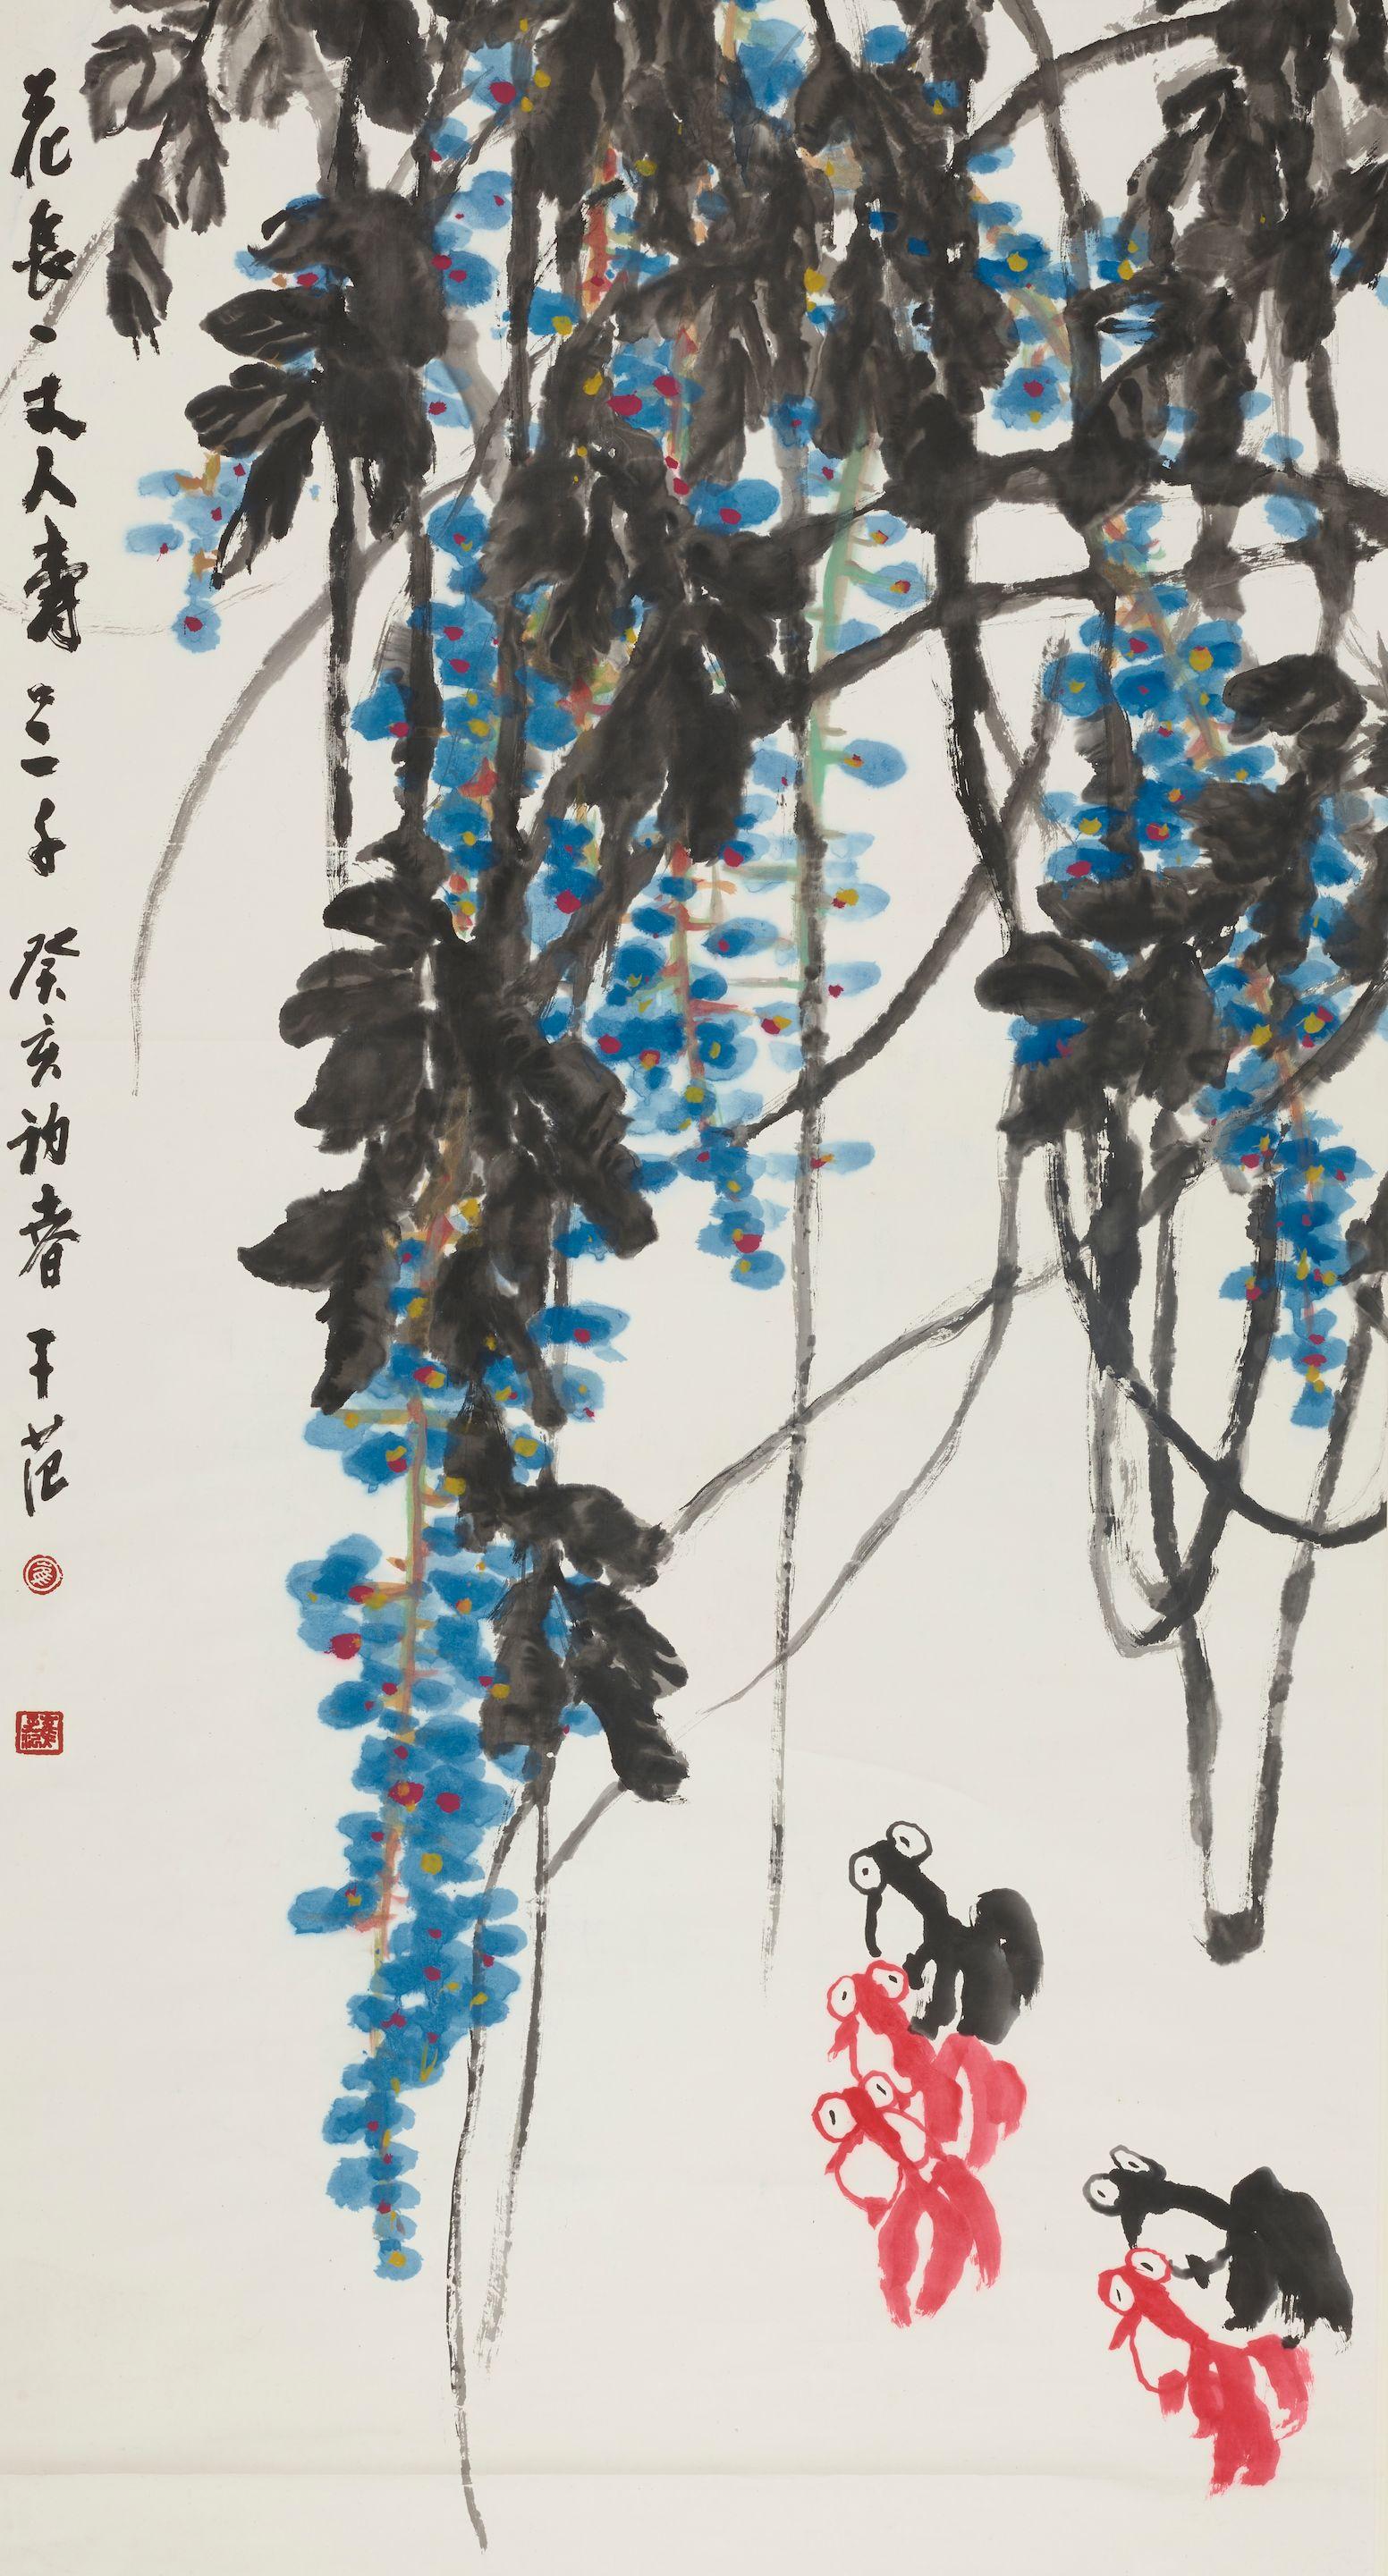 花長一丈人壽三千 癸亥初春 子范